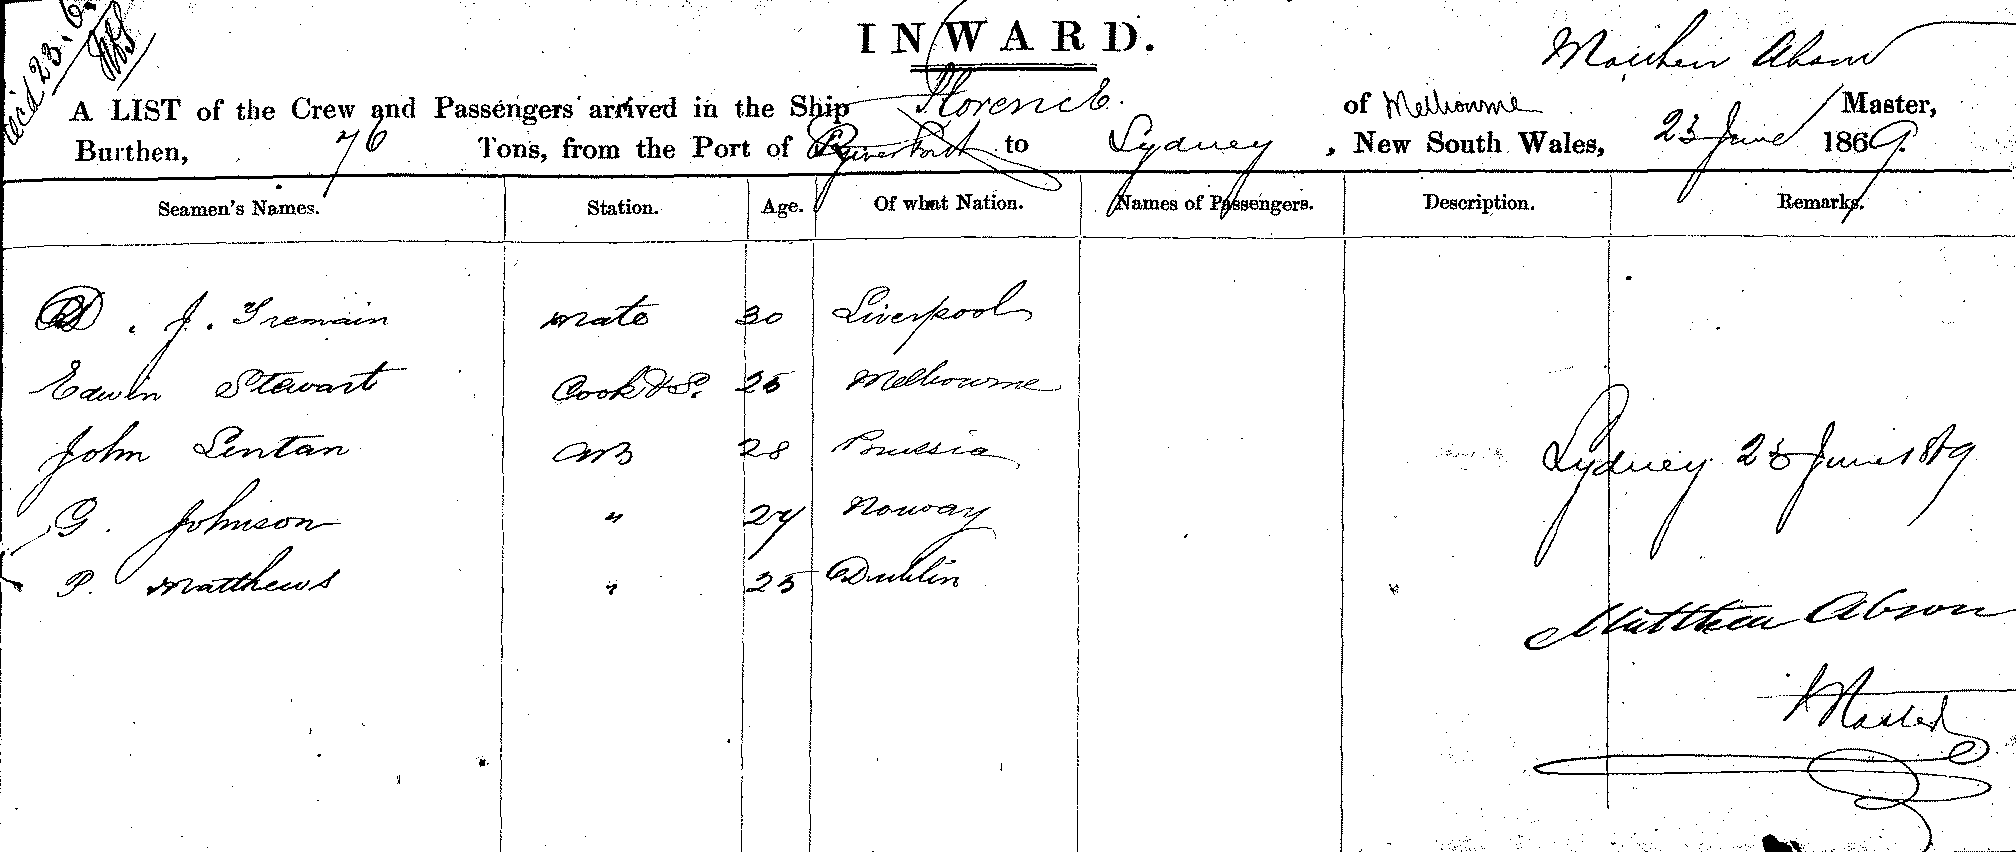 INWARD.
Matthew Abson
A LIST of the Crew and Passengers arrived in the Ship Florence. of Melbourne Master,
Burthen, 76 Tons, from the Port of to Sydney, New South Wales, 23 June 1869.
Seamen's Names. Station. Age. Of what Nation. Names of Passengers. Description. Remarks.
J. Tremain mate 30 Liverpool
Edwin Stewart Cook & S. 25 Melbourne
John Lentan AB 28 Prussia
G. Johnson " 27 Norway
P. Matthews " 25 Dublin
Sydney 23 June 1869
Matthew Abson
Master